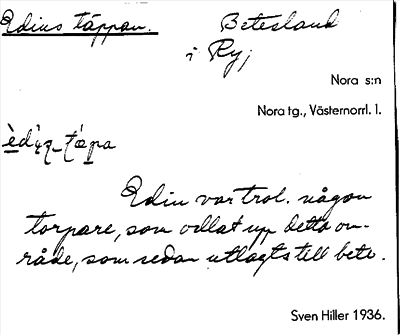 Edins täppan. Betesland
i Ry;
Nora s:n
Nora tg., Västernorrl. l.
Edin var trol. någon
torpare, som odlat upp detta om-
råde, som sedan utlagts till bete.
Sven Hiller 1936.